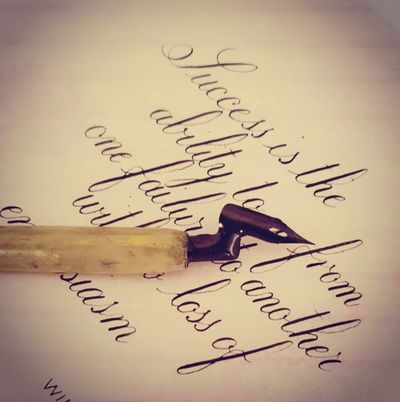 Success is the
ability to from
one failure to another
with loss of
en siasm